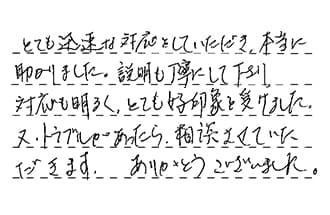 とても迅速な対応をしていただき、本当に
助かりました。説明も丁寧にして下さり、
対応も明るく、とても好印象を受けました。
又、トラブルがあったら、相談させていた
だきます。 ありがとうございました。